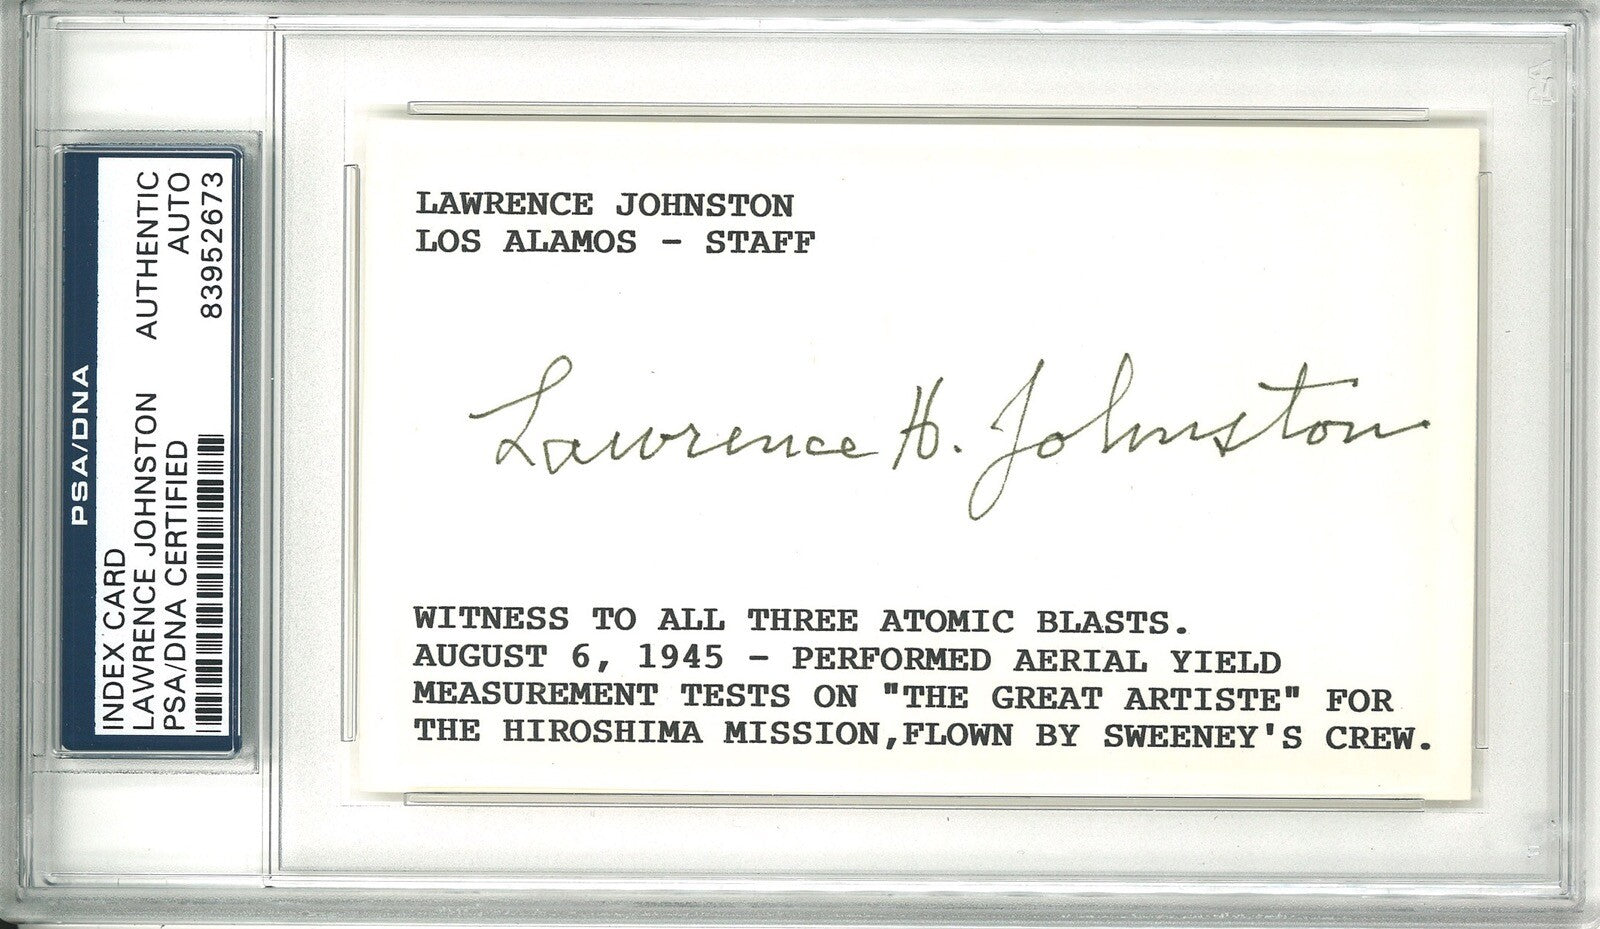 PSA/DNA
INDEX CARD
LAWRENCE JOHNSTON AUTHENTIC
PSA/DNA CERTIFIED AUTO
83952673
LAWRENCE JOHNSTON
LOS ALAMOS - STAFF
Lawrence H. Johnston
WITNESS TO ALL THREE ATOMIC BLASTS.
AUGUST 6, 1945 - PERFORMED AERIAL YIELD
MEASUREMENT TESTS ON "THE GREAT ARTISTE" FOR
THE HIROSHIMA MISSION,FLOWN BY SWEENEY'S CREW.